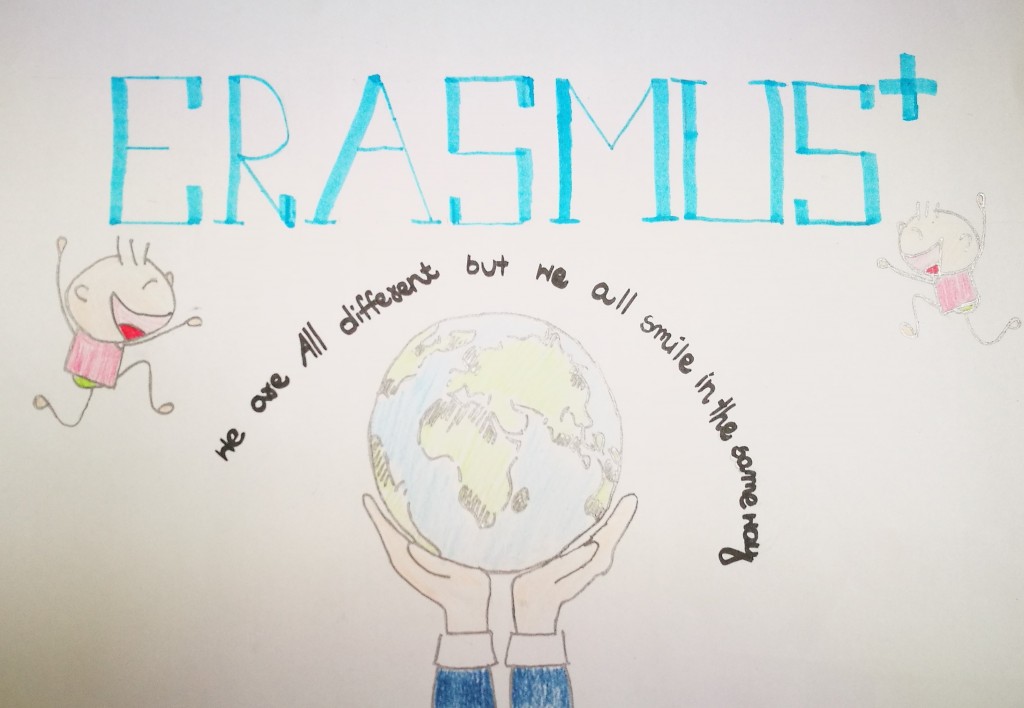 ERASMUS+
we are All different but we all smile in the same way